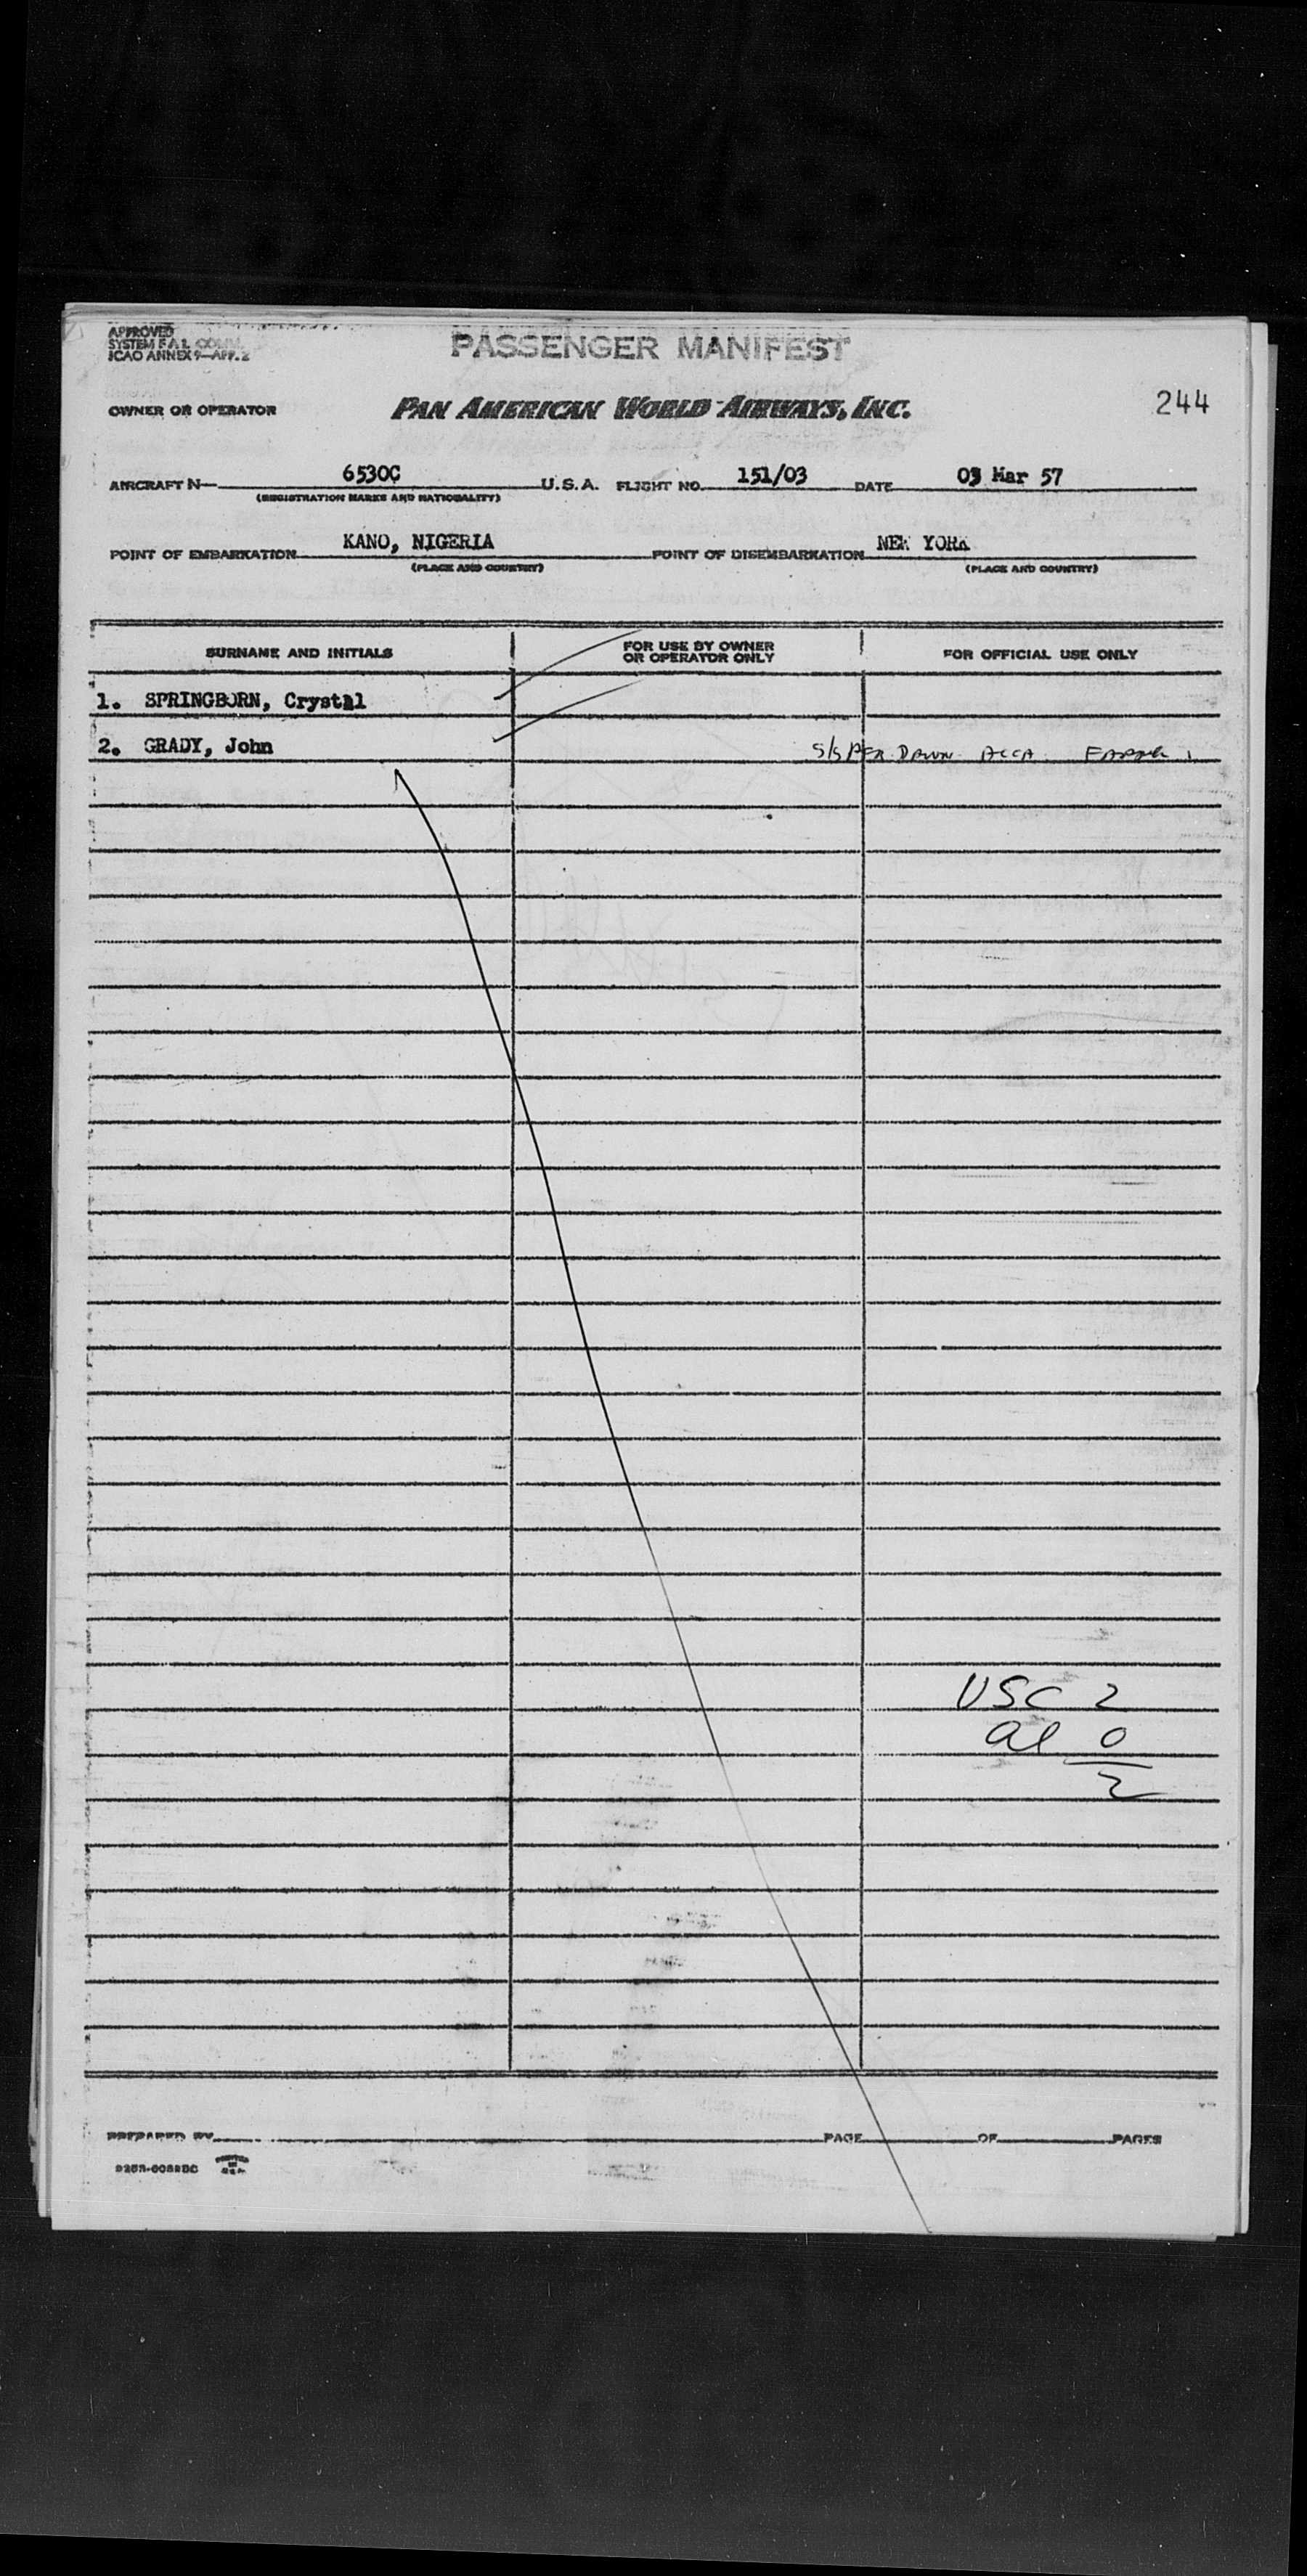 APPROVED
SYSTEM F.A.L. COMM.
ICAO ANNEX 9—APP. 2
PASSENGER MANIFEST
OWNER OR OPERATOR PAN AMERICAN WORLD AIRWAYS, INC. 244
AIRCRAFT N— 6530C U.S.A. FLIGHT NO. 151/03 DATE 03 Mar 57
(REGISTRATION MARKS AND NATIONALITY)
POINT OF EMBARKATION KANO, NIGERIA POINT OF DISEMBARKATION NEW YORK
(PLACE AND COUNTRY) (PLACE AND COUNTRY)
SURNAME AND INITIALS FOR USE BY OWNER OR OPERATOR ONLY FOR OFFICIAL USE ONLY
1. SPRINGBORN, Crystal
2. GRADY, John S/S PER DAWN ACCA
USC 2
al 0
2
PREPARED BY PAGE OF PAGES
PRINTED IN U.S.A.